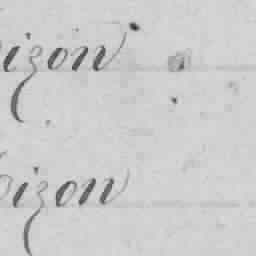 izon
izon